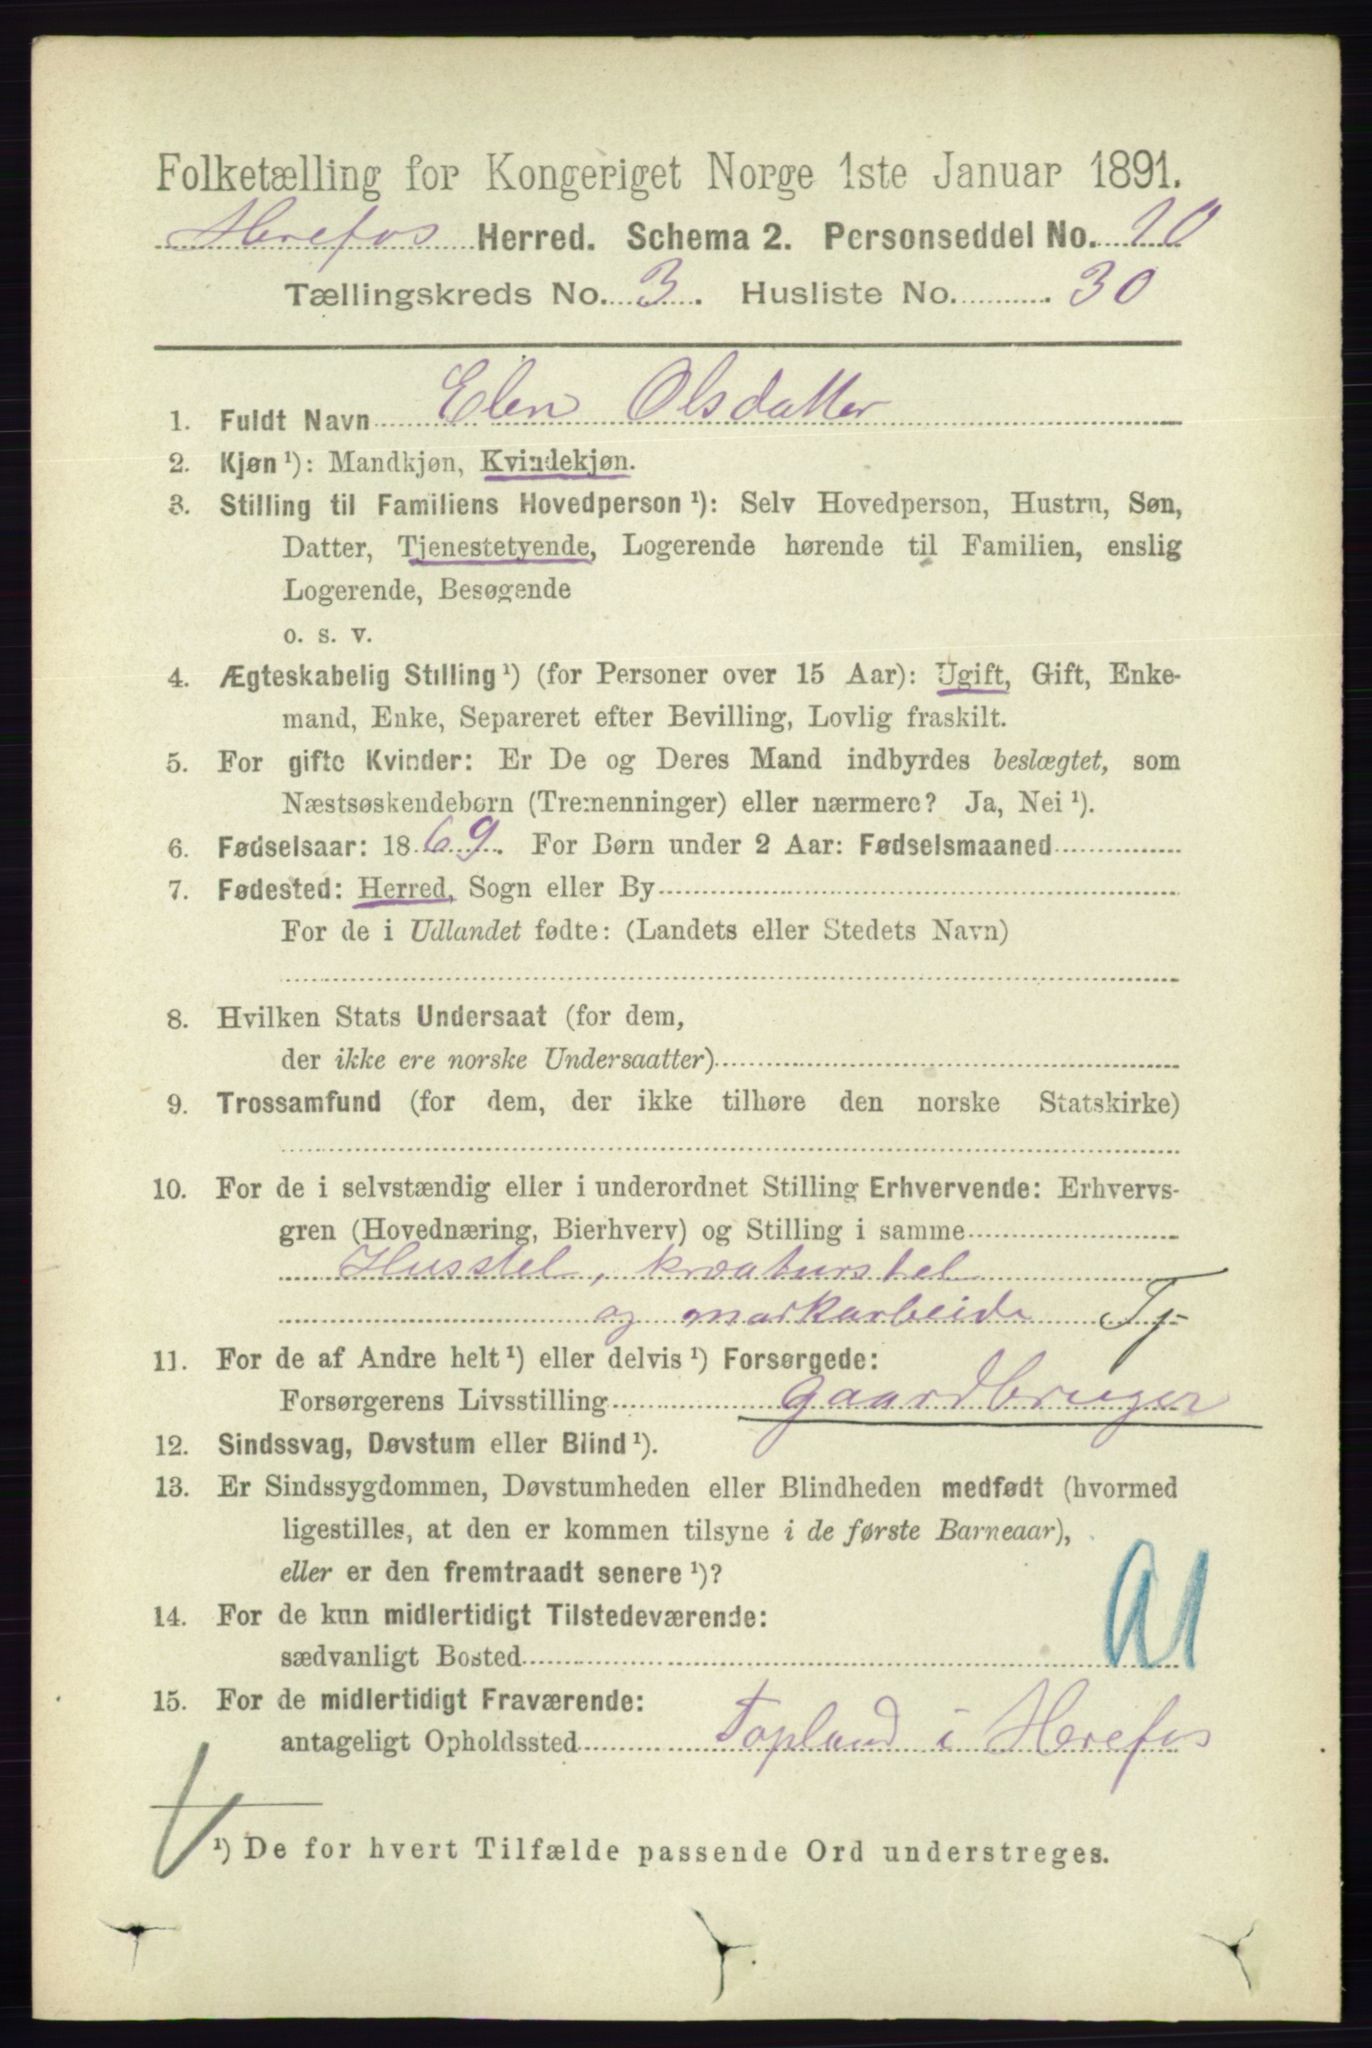 Folketælling for Kongeriget Norge 1ste Januar 1891.
Herefos Herred. Schema 2. Personseddel No. 10
Tællingskreds No. 3. Husliste No. 30
1. Fuldt Navn Elen Olsdatter
2. Kjøn ¹): Mandkjøn, Kvindekjøn.
3. Stilling til Familiens Hovedperson ¹): Selv Hovedperson, Hustru, Søn,
Datter, Tjenestetyende, Logerende hørende til Familien, enslig
Logerende, Besøgende
o. s. v.
4. Ægteskabelig Stilling ¹) (for Personer over 15 Aar): Ugift, Gift, Enke-
mand, Enke, Separeret efter Bevilling, Lovlig fraskilt.
5. For gifte Kvinder: Er De og Deres Mand indbyrdes beslægtet, som
Næstsøskendebørn (Tremenninger) eller nærmere? Ja, Nei ¹).
6. Fødselsaar: 1869. For Børn under 2 Aar: Fødselsmaaned
7. Fødested: Herred, Sogn eller By
For de i Udlandet fødte: (Landets eller Stedets Navn)
8. Hvilken Stats Undersaat (for dem,
der ikke ere norske Undersaatter)
9. Trossamfund (for dem, der ikke tilhøre den norske Statskirke)
10. For de i selvstændig eller i underordnet Stilling Erhvervende: Erhvervs-
gren (Hovednæring, Bierhverv) og Stilling i samme
Husstel, kræaturstel
og markarbeide Tj
11. For de af Andre helt ¹) eller delvis ¹) Forsørgede:
Forsørgerens Livsstilling gaardbruger
12. Sindssvag, Døvstum eller Blind ¹).
13. Er Sindssygdommen, Døvstumheden eller Blindheden medfødt (hvormed
ligestilles, at den er kommen tilsyne i de første Barneaar),
eller er den fremtraadt senere ¹)?
14. For de kun midlertidigt Tilstedeværende:
sædvanligt Bosted
15. For de midlertidigt Fraværende:
antageligt Opholdssted Topland i Herefos
¹) De for hvert Tilfælde passende Ord understreges.